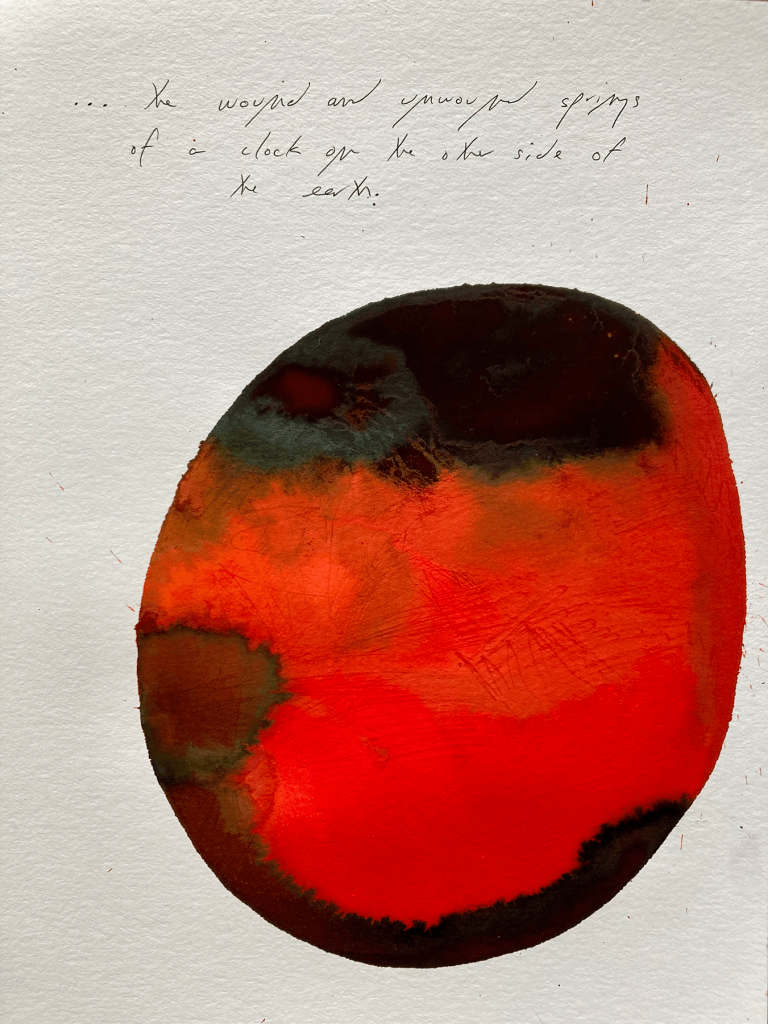 ... the wound and unwound springs
of a clock on the other side of
the earth.